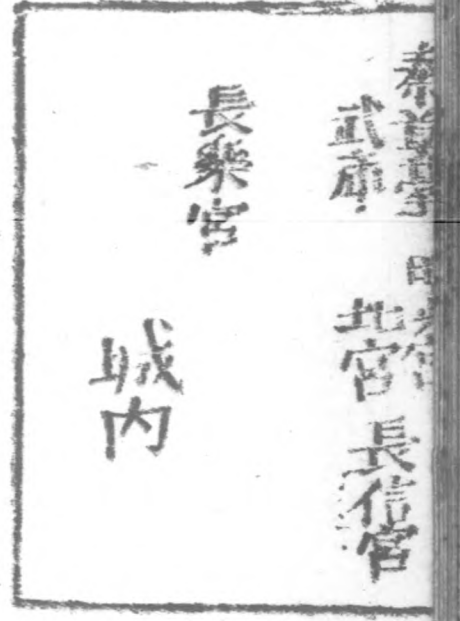 武庫
北宮
長信宮
長樂宮
城内